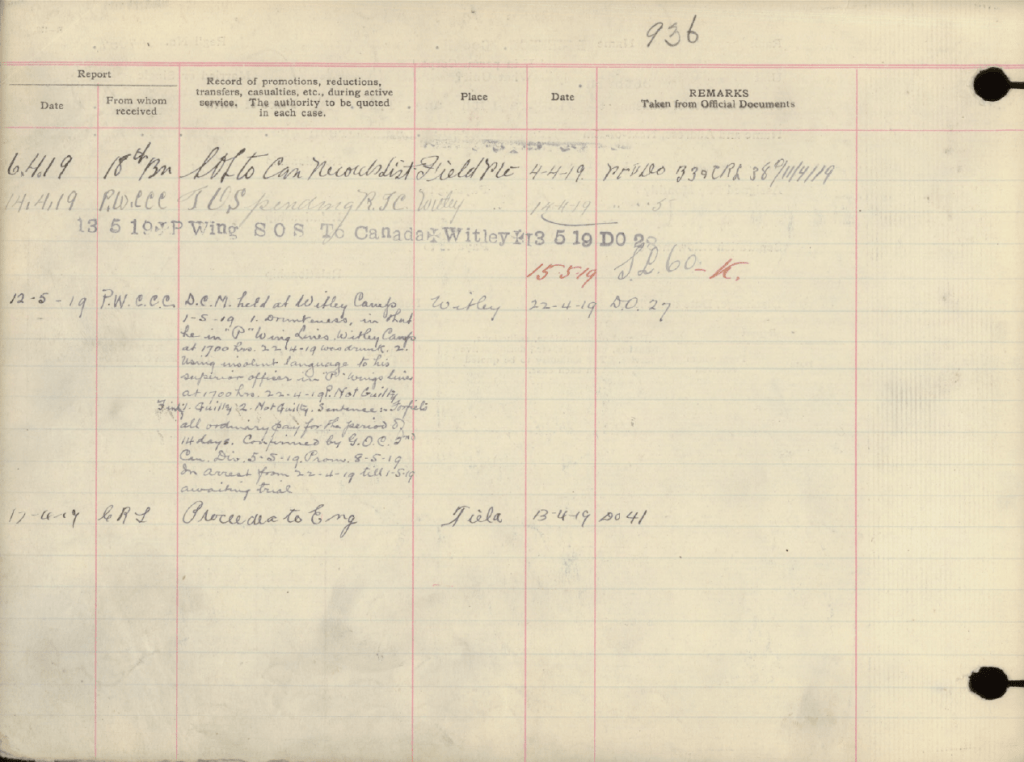 936
Report
Date
From whom
received
Record of promotions, reductions,
transfers, casualties, etc., during active
service. The authority to be quoted
in each case.
Place
Date
REMARKS
Taken from Official Documents
6.4.19 18th Bn SOS to Can Records List Field Pte 4-4-19
14.4.19 P.W.C.C.C T O S pending R.T.C. Witley " 14-4-19
13 5 19 P Wing S O S To Canada Witley 13 5 19 D O 28
15-5-19 S.L. 60 - K.
12-5-19 P.W.C.C.C. D.C.M. held at Witley Camp Witley 22-4-19 D.O. 27
1-5-19 1. Drunkeness, in that
he in "P" Wing Lines, Witley Camp
at 1700 hrs. 22-4-19 was drunk. 2.
Using insolent language to his
superior officer in "P" Wings lines
at 1700 hrs. 22-4-19 P. Not Guilty
1. Guilty 2. Not Guilty. Sentence: Forfeits
all ordinary pay for the period of
14 days. Confirmed by G.O.C. 2nd
Can. Div. 5-5-19. Prom. 8-5-19
In arrest from 22-4-19 till 1-5-19
awaiting trial
C R L Proceeded to Eng Field 13-4-19 DO 41